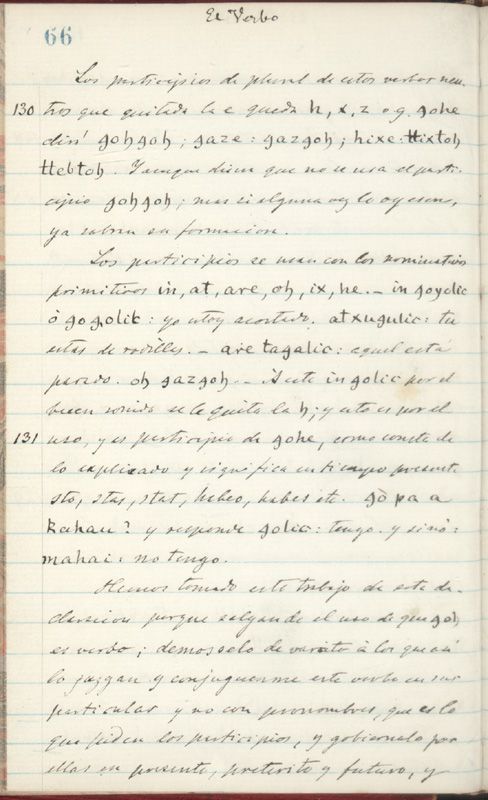 El Verbo
66
Los participios de plural de estos verbos neu-
130 tros que quitada la e queda h, x, z o g. gohe
dirá gohgoh; gaze: gazgoh; hixe: ttixtoh
ttebtoh. Y aunque dicen que no se usa el parti-
cipio gohgoh; mas si alguna vez lo oyesen,
ya sabran su formacion.
Los participios se usan con los nominativos
primitivos in, at, are, oh, ix, he. - in goyolic
ò gogolic: yo estoy acostado. atxugulic: tu
estas de rodillas. - are tagalic: aquel está
parado. oh gazgoh. - A este in golic por el
buen sonido se le quita la h; y esto es por el
131 uso, y es participio de gohe, como consta de
lo explicado y significa en tiempo present.
sto, stas, stat, habeo, habes etc. gò pa a
kahau? y responde golic: tengo. y sinò:
mahai: no tengo.
Hemos tomado este trabajo de esta de-
claracion porque salgan de el uso de que goh
es verbo; demoselo de varato à los que asi
lo juzgan y conjuguenme este verbo en sus
particulas y no con pronombres, que es lo
que piden los participios, y gobiernelo por
ellas en presente, preterito y futuro, y